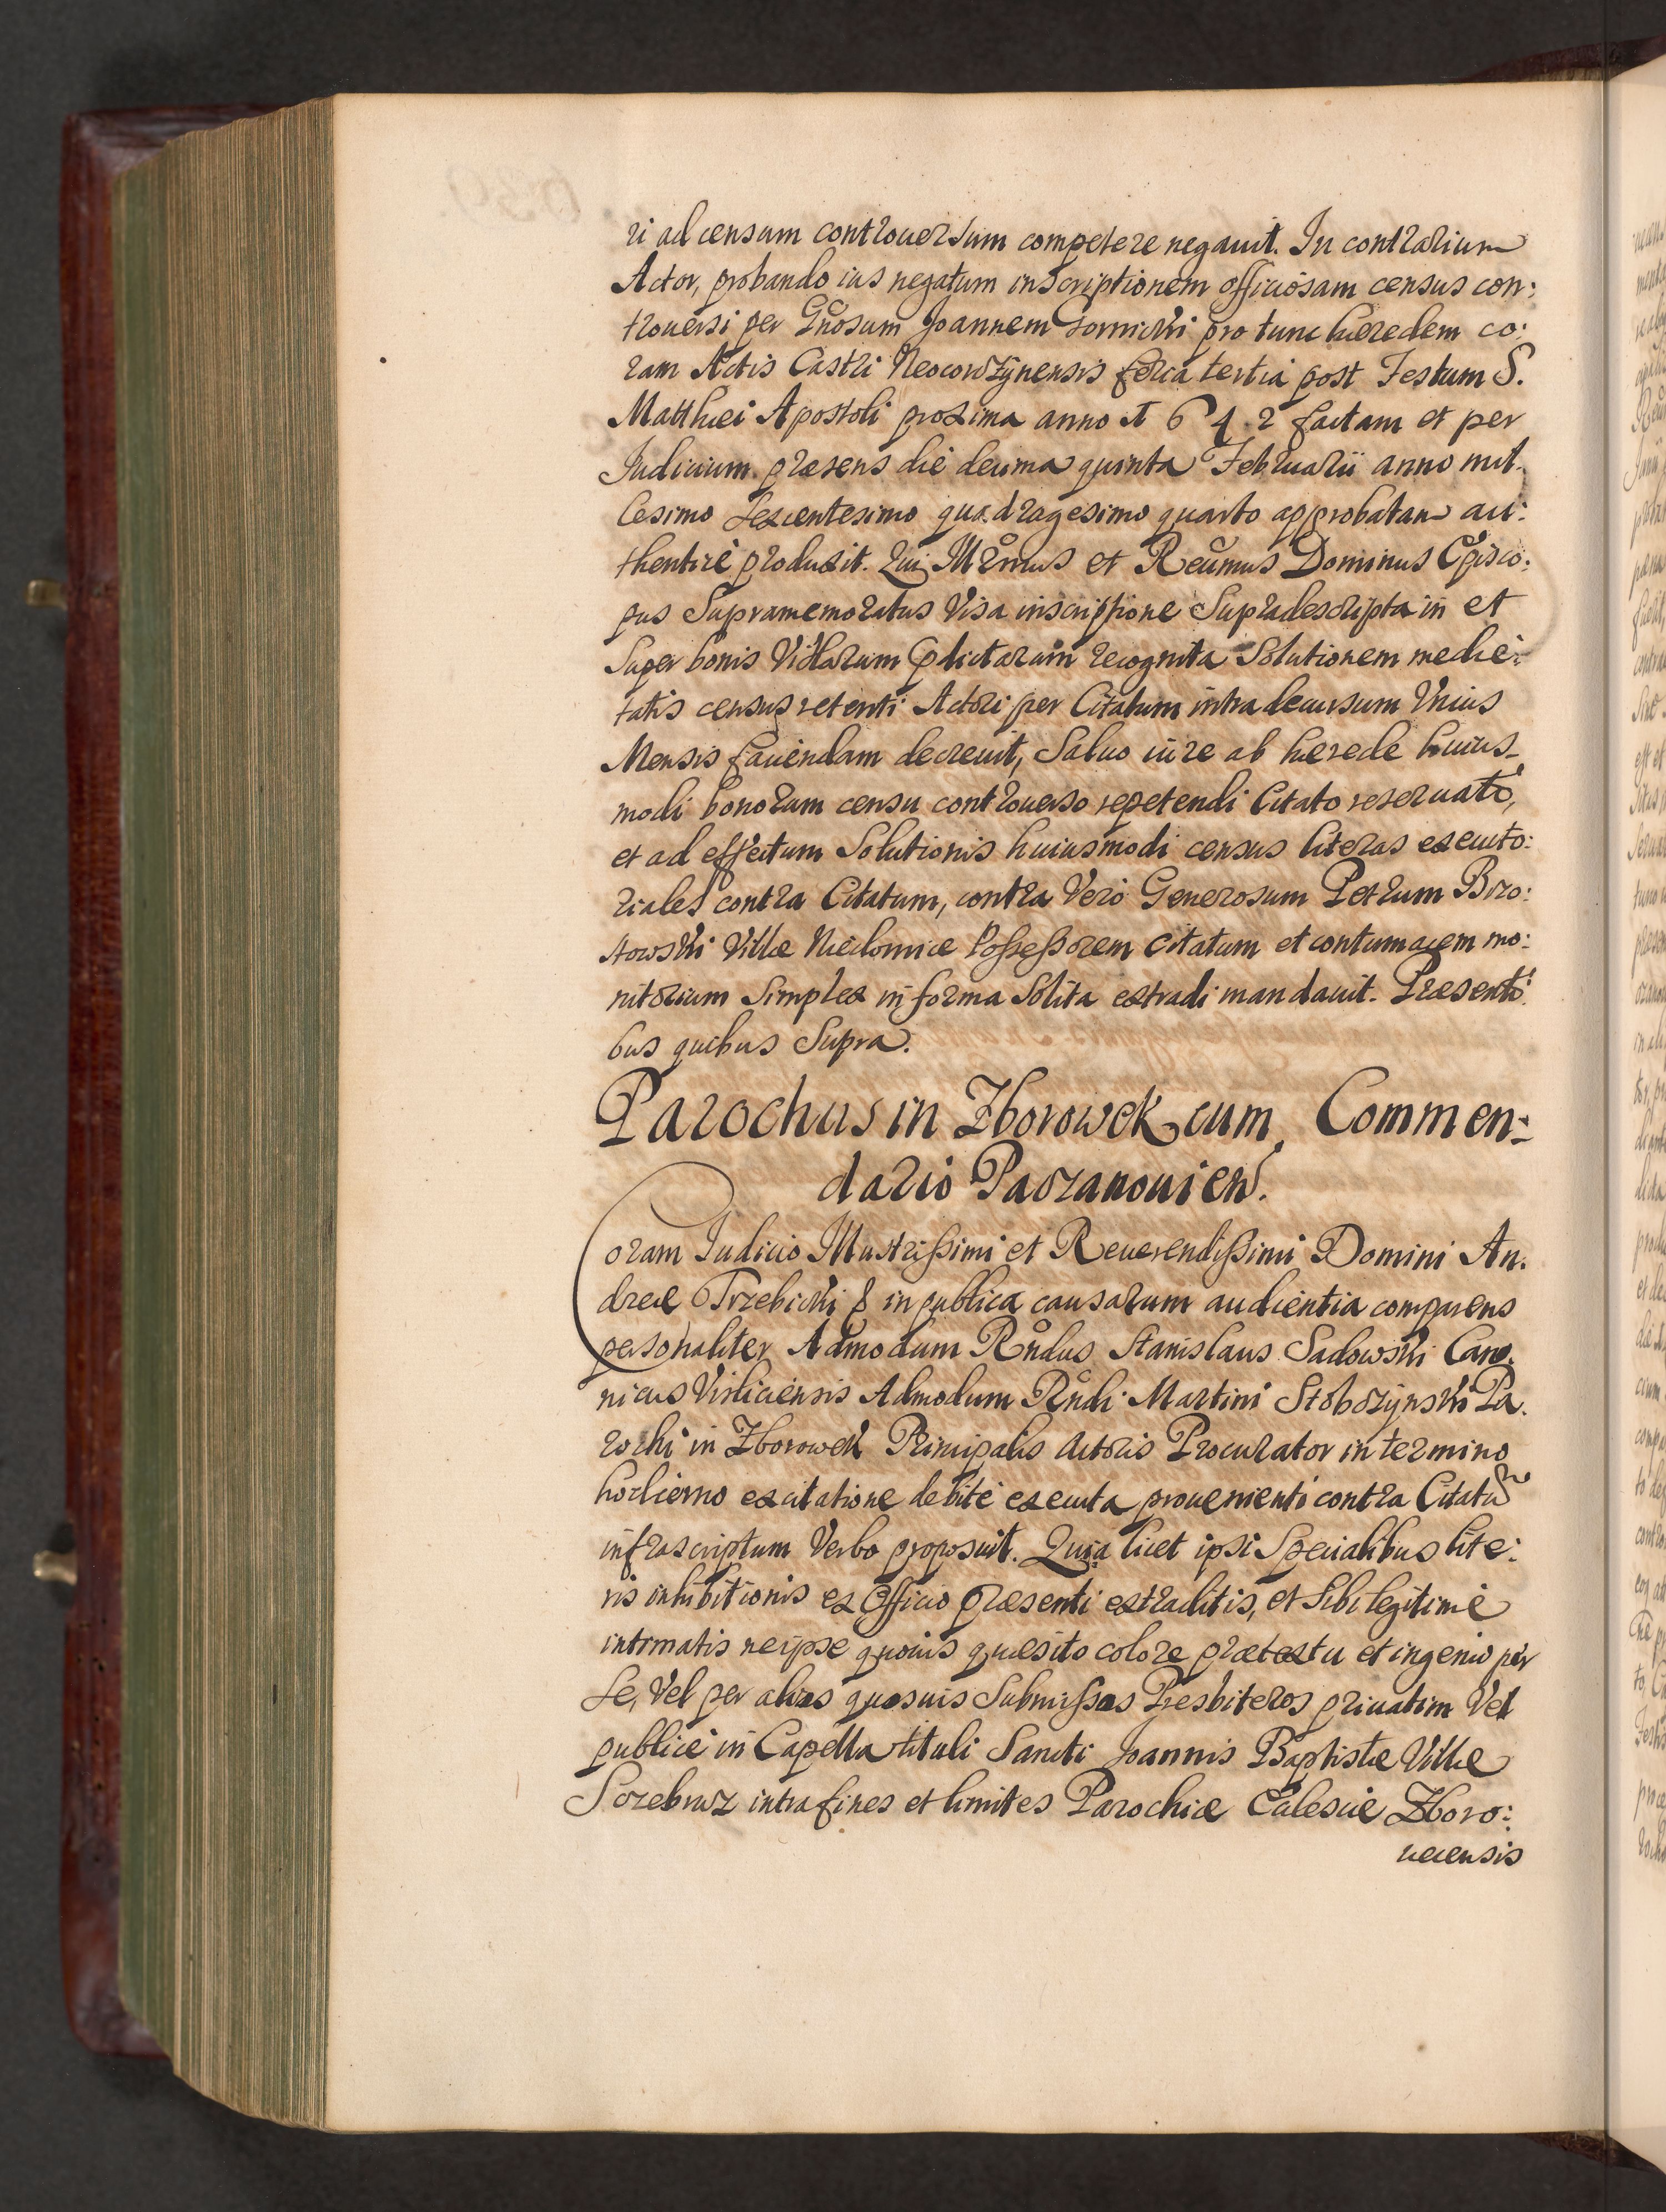 ri ad censum controuersum competere negauit. In contrarium
Actor, probando ius negatum inscriptionem officiosam census con:
trouersi per Gnosum Joannem Gornicki pro tunc hæredem co:
ram Actis Castri Neocorczÿnensis feria tertia post Festum S.
Matthæi Apostoli proxima anno 1642 factam et per
Iudicium præsens die decima quinta Februarii anno mil-
lesimo sexcentesimo quadragesimo quarto approbatam au:
thenticè produxit. Qui Illrmus et Reumus Dominus Episco:
pus Supramemoratus Visa inscriptione Supradescripta in et
Super bonis Villarum pdictarum recognita Solutionem medie:
tatis census retenti Actori per Citatum intra decursum Vnius
Mensis faciendam decreuit, Saluo iure ab hærede huius-
modi bonorum censu controuerso repetendi Citato reseruato,
et ad effectum Solutionis huiusmodi census literas executo:
riales contra Citatum, contra Verò Generosum Petrum Brzo:
stowski Villæ Niedomice Possessorem Citatum et contumacem mo:
nitorium Simplex in forma Solita extradi mandauit. Præsenti:
bus quibus Supra.
Parochus in Zborowek cum Commen:
dario Paczanouien.
Coram Iudicio Illustrissimi et Reuerendissimi Domini An.
dreæ Trzebicki & in publica causarum audientia comparens
personaliter Admodum Rndus Stanislaus Sadowski Cano.
nicus Visliciensis Admodum Rndi Martini Stobozÿnski Pa.
rochi in Zborowek Principalis Actoris Procurator in termino
hodierno ex citatione debitè executa prouenienti contra Citatu
infrascriptum Verbo proposuit. Quia licet ipsi Specialibus lite:
ris inhibitionis ex Officio præsenti extraditis, et Sibi legitimè
intimatis ne ipse quouis quæsito colore prætextu et ingenio per
Se, Vel per alios quosuis Submissos Presbiteros priuatim Vel
publicè in Capella tituli Sancti Joannis Baptistæ Villæ
Sczebrusz intra fines et limites Parochiæ Ealesiæ Zboro:
uecensis